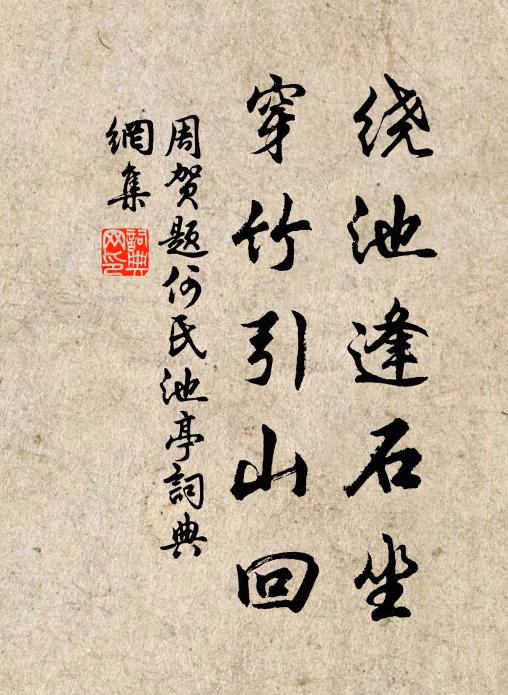 绕池逢石坐
穿竹引山回
周贺题何氏池亭詞典
網集
詞典
网印